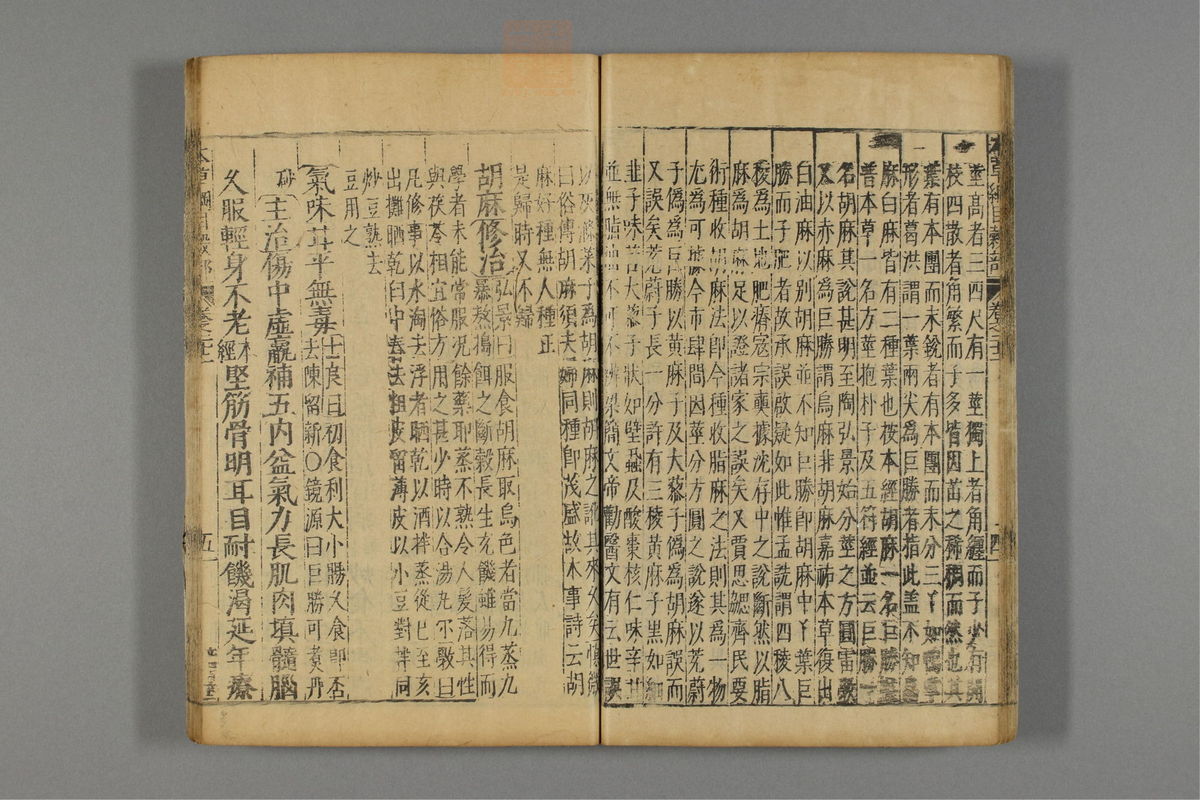 本草綱目穀部 卷之二十二 四
莖高者三四尺有一莖獨上者角纏而子少有開
枝四散者角繁而子多皆因苗之稀稠而然也其
葉有本團而末銳者有本團而末分三丫如鴨掌
形者葛洪謂一葉兩尖爲巨勝者指此盖不知烏
麻白麻皆有二種葉也按本經胡麻一名巨勝
普本草一名方莖抱朴子及五符經並云巨勝一
名胡麻其說甚明至陶弘景始分莖之方圓雷斆
又以赤麻爲巨勝謂烏麻非胡麻嘉祐本草復出
白油麻以別胡麻並不知巨勝卽胡麻中丫葉巨
勝而子肥者故承誤啟疑如此惟孟詵謂四稜八
稜爲土地肥瘠寇宗奭據沈存中之說斷然以脂
麻爲胡麻足以證諸家之誤矣又賈思勰齊民要
術種收胡麻法卽今種收脂麻之法則其爲一物
尤爲可據今市肆間因莖分方圓之說遂以茺蔚
子僞爲巨勝以黃麻子及大藜子僞爲胡麻誤而
又誤矣茺蔚子長一分許有三稜黃麻子黑如細
韭子味苦大藜子狀如壁蝨及酸棗核仁味辛甘
並無脂油不可不辨梁簡文帝勸醫文有云世誤
以灰滌菜子爲胡麻則胡麻之訛其來久矣愼微
曰俗傳胡麻須夫婦同種卽茂盛故本事詩云胡
麻好種無人種正
是歸時又不歸
胡麻修治
弘景曰服食胡麻取烏色者當九蒸九
暴熬搗餌之斷穀長生充饑雖易得而
學者未能常服况餘藥耶蒸不熟令人髮落其性
與茯苓相宜俗方用之甚少時以合湯丸尔斆曰
凡修事以水淘去浮者晒乾以酒拌蒸從巳至亥
出攤晒乾臼中舂去粗皮留薄皮以小豆對拌同
炒豆熟去
豆用之
氣味甘平無毒
士良曰初食利大小腸久食卽否
去陳留新○鏡源曰巨勝可煑丹
砂
主治傷中虛羸補五內益氣力長肌肉塡髓腦
久服輕身不老本經堅筋骨明耳目耐饑渴延年療
本草綱目穀部 卷之二十二 五